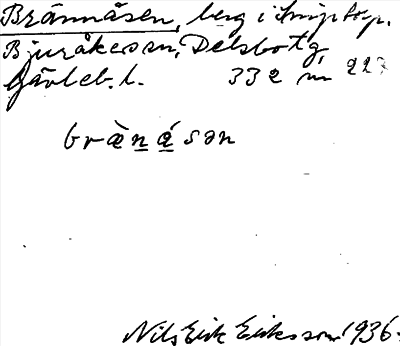 Brännåsen, berg i
Bjuråkers sn, Delsbo tg,
Gävleb. l. 332 m 227
brän̲å̲sən
Nils Erik Eriksson 1936.